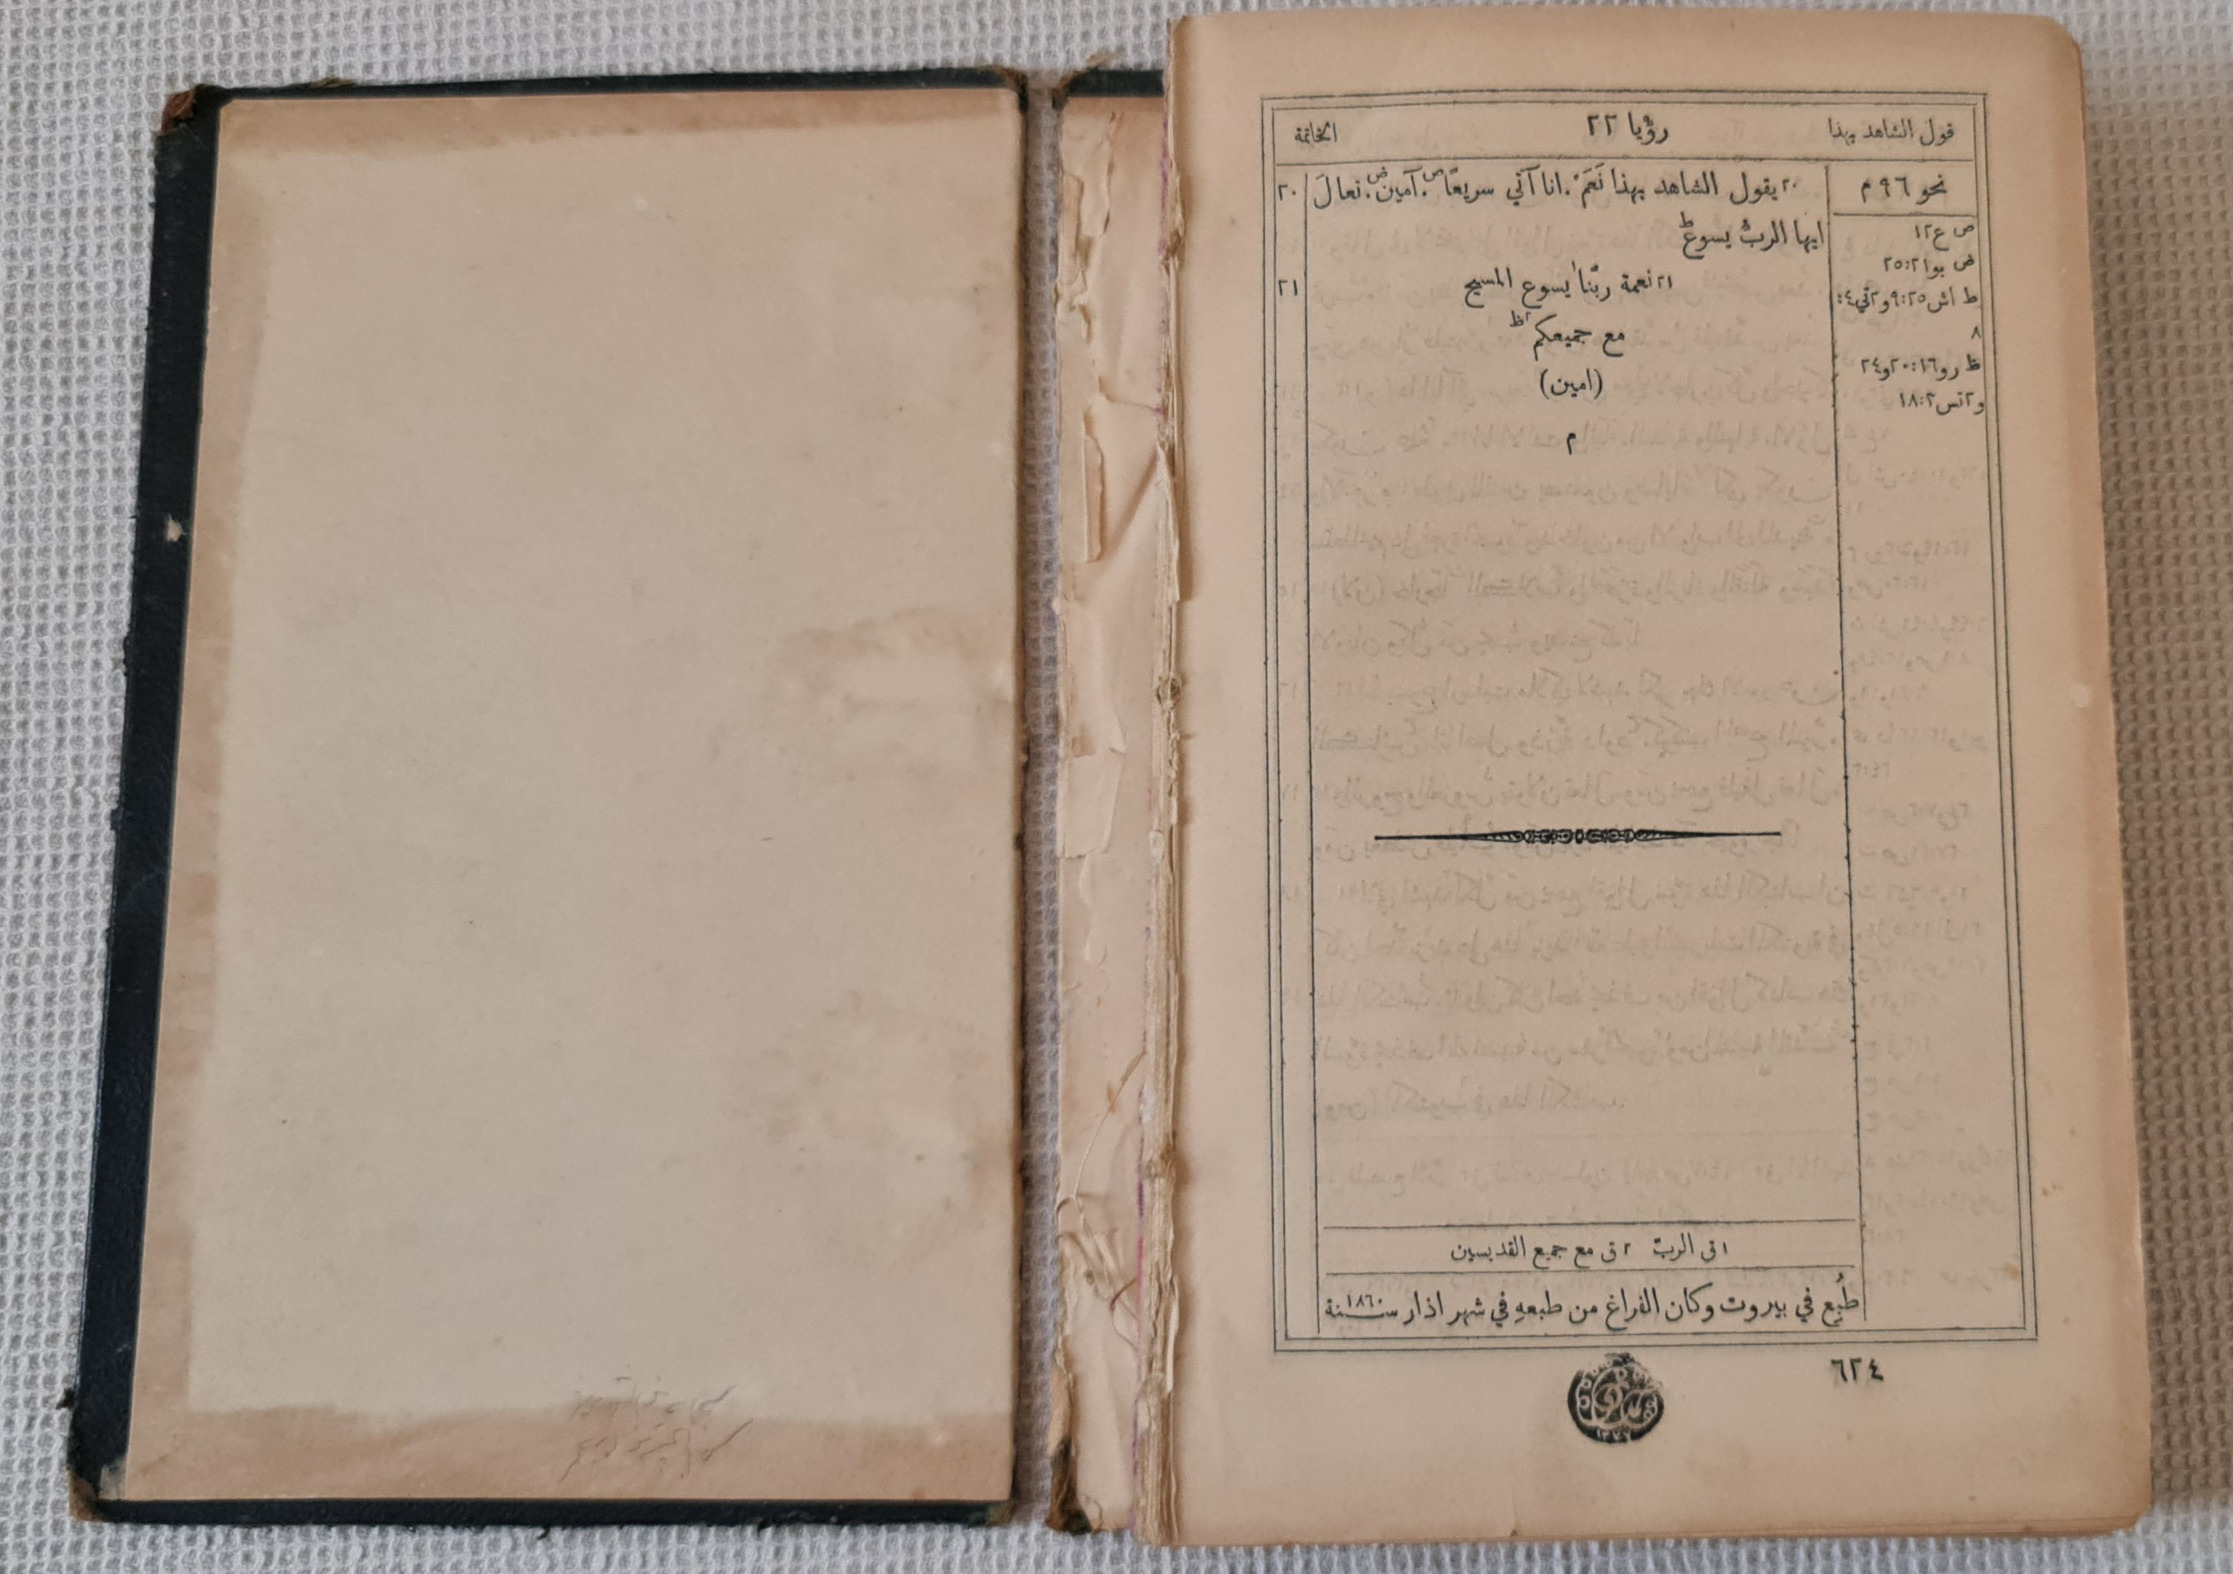 قول الشاهد بهذا
رؤيا ٢٢
الخاتمة
نحو ٩٦ م
ص ع ١٢
ض يو ٢١:‏٢٥
ط اش ٢٥:‏٩ و٢تي ٤:
٨
ظ رو ١٦:‏٢٠ و٢٤
و٢تس ٢:‏١٨
٢٠ يقول الشاهد بهذا نَعَمْ. انا آتي سريعًا ص. آمين ض. تعالَ
٢٠
ايها الربُّ يسوع ط
٢١ نعمة ربّنا ١ يسوع المسيح
٢١
مع جميعكم ٢ ظ
(امين)
م
١ تى الربّ ٢ تى مع جميع القديسين
طُبِع في بيروت وكان الفراغ من طبعهِ في شهر اذار سنة ١٨٦٠
٦٢٤